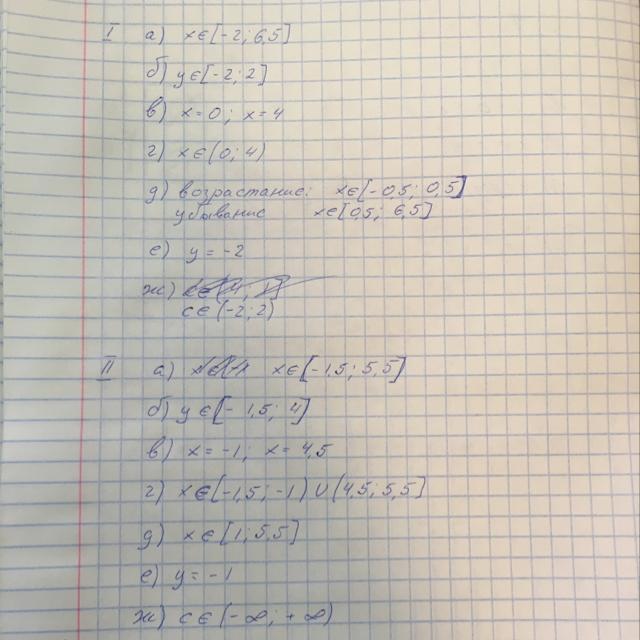 I а) x∈[-2; 6,5]
б) y∈[-2; 2]
в) x=0; x=4
г) x∈(0; 4)
д) возрастание: x∈[-0,5; 0,5]
убывание x∈[0,5; 6,5]
е) y = -2
ж)
c∈(-2; 2)
II а) x∈[-1,5; 5,5]
б) y∈[-1,5; 4]
в) x = -1; x = 4,5
г) x∈[-1,5; -1)∪(4,5; 5,5]
д) x∈[1; 5,5]
е) y = -1
ж) c∈(-∞; +∞)